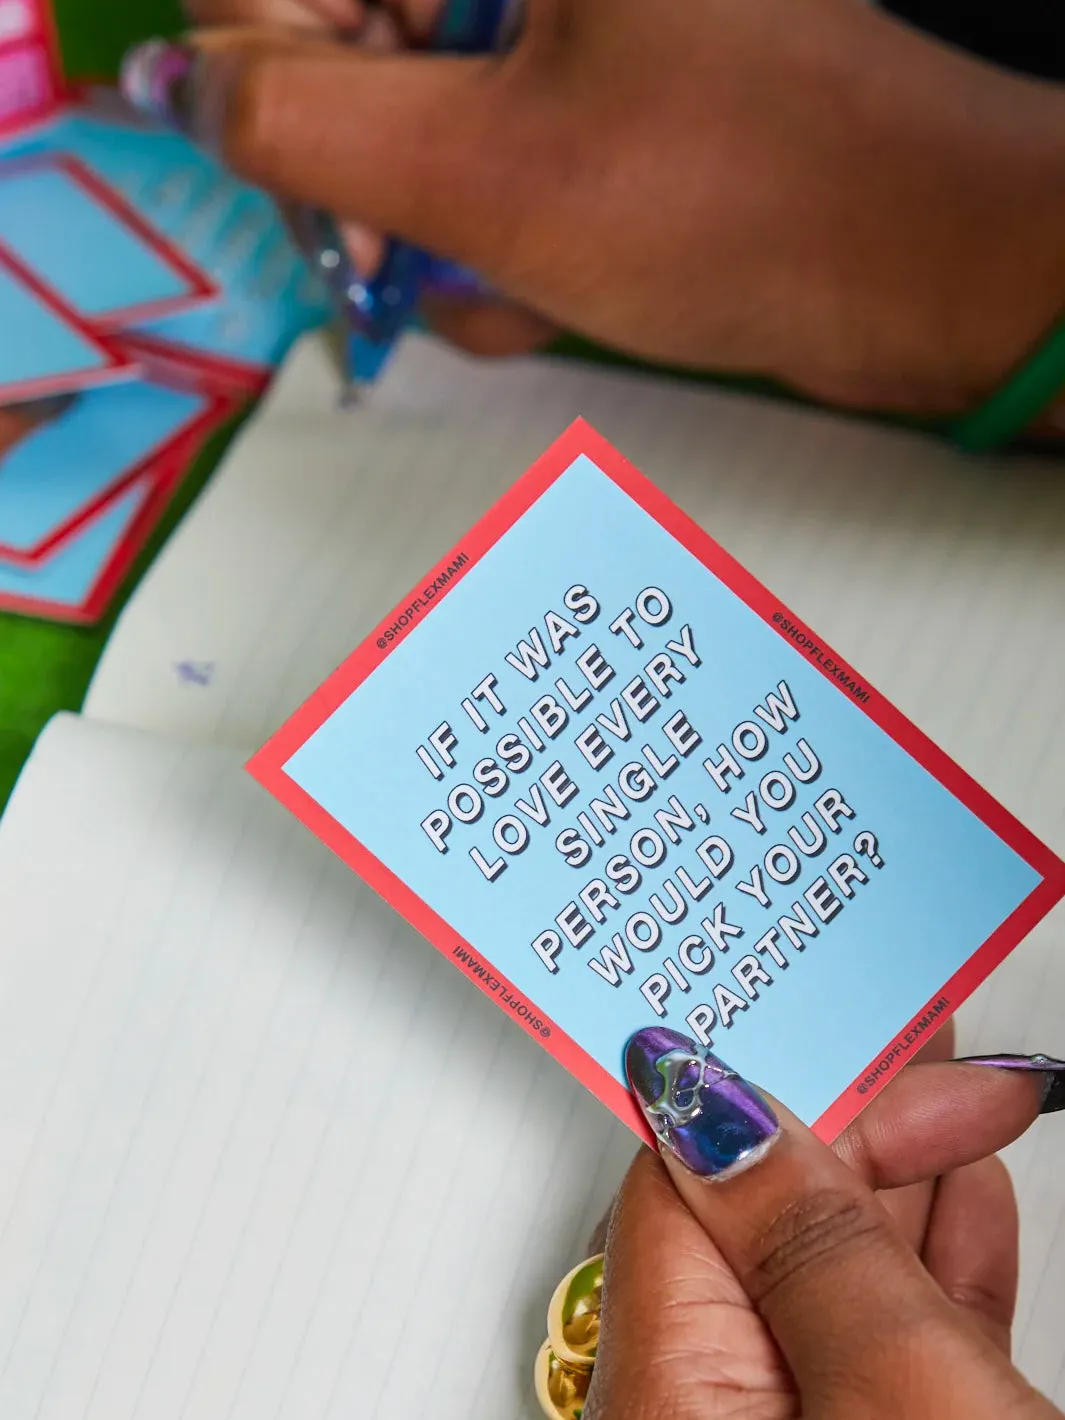 IF IT WAS
POSSIBLE TO
LOVE EVERY
SINGLE
PERSON, HOW
WOULD YOU
PICK YOUR
PARTNER?
@SHOPFLEXMAMI
@SHOPFLEXMAMI
@SHOPFLEXMAMI
@SHOPFLEXMAMI